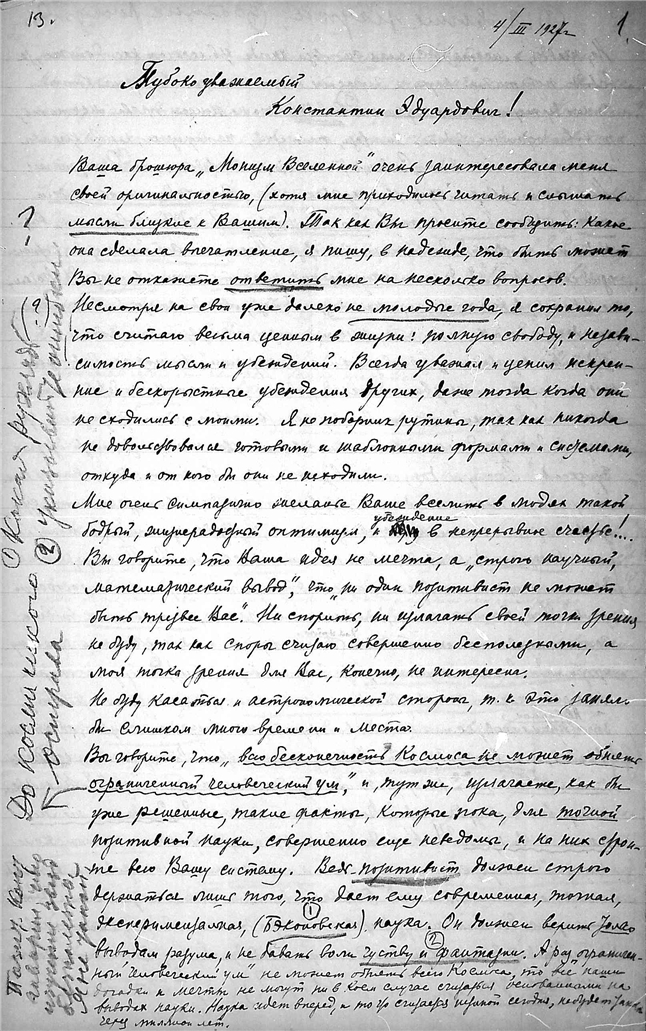 13.
4/III 1927 г.
1
Глубоко уважаемый
Константин Эдуардович!
Ваша брошюра „Монизм Вселенной" очень заинтересовала меня
своей оригинальностью, (хотя мне приходилось читать и слышать
мысли близкие к Вашим). Так как Вы просите сообщить: какое
она сделала впечатление, я пишу, в надежде, что быть может
Вы не откажете ответить мне на несколько вопросов.
Несмотря на свои уже далеко не молодые года, я сохранил то,
что считаю весьма ценным в жизни: полную свободу, и незави-
симость мысли и убеждений. Всегда уважал и ценил искрен-
ние и бескорыстные убеждения других, даже тогда когда они
не сходились с моими. Я не поборник рутины, так как никогда
не довольствовался готовыми и шаблонными формами и системами,
откуда и от кого бы они не исходили.
Мне очень симпатично желанье Ваше вселить в людях такой
убеждение
бодрый, жизнерадостный оптимизм, и в непрерывное счастье!...
Вы говорите, что Ваша идея не мечта, а „строго научный,
математический вывод", что „ни один позитивист не может
быть трезвее Вас". Ни спорить, ни излагать своей точки зрения
не буду, так как споры считаю совершенно бесполезными, а
моя точка зрения для Вас, конечно, не интересна.
Не буду касаться и астрономической стороны, т. к. это заняло
бы слишком много времени и места.
Вы говорите, что „всю бесконечность Космоса не может обнять
ограниченный человеческий ум", и, тут же, излагаете, как бы
уже решенные, такие факты, которые пока, для точной
позитивной науки, совершенно еще неведомы, и на них строи-
те всю Вашу систему. Ведь позитивист должен строго
держаться лишь того, что дает ему современная, точная,
экспериментальная, (Бэконовская) наука. Он должен верить только
1
выводам разума, и не давать воли чувству и фантазии. А раз „ограничен-
2
ный человеческий ум" не может обнять всего Космоса, то все наши
догадки и мечты не могут ни в коем случае считаться основанными на
выводах науки. Наука идет вперед, и то что считается истиной сегодня, не будет таковой
через миллион лет.
?
До космического
1 Какая
2